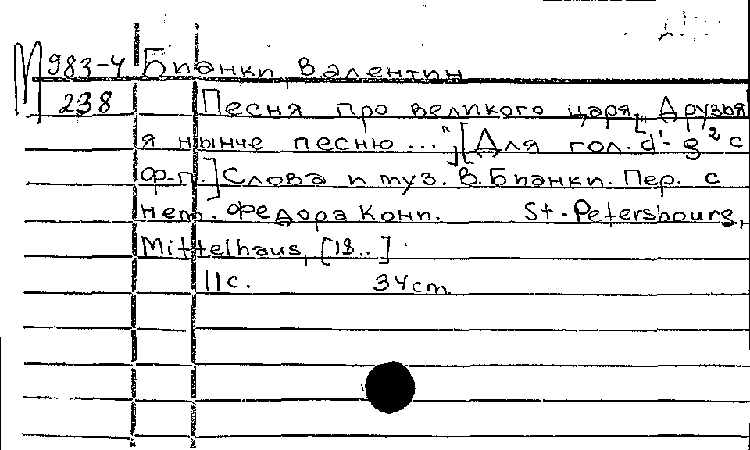 М 983-4 Бианки Валентин
238 Песня про великого царя. „Друзья
я нынче песню ...", [Для гол. d¹-g² с
ф-п.] Слова и муз. В. Бианки. Пер. с
нем. Федора Кони. St.-Petersbourg,
Mittelhaus, [18..]
11 с. 34 см.